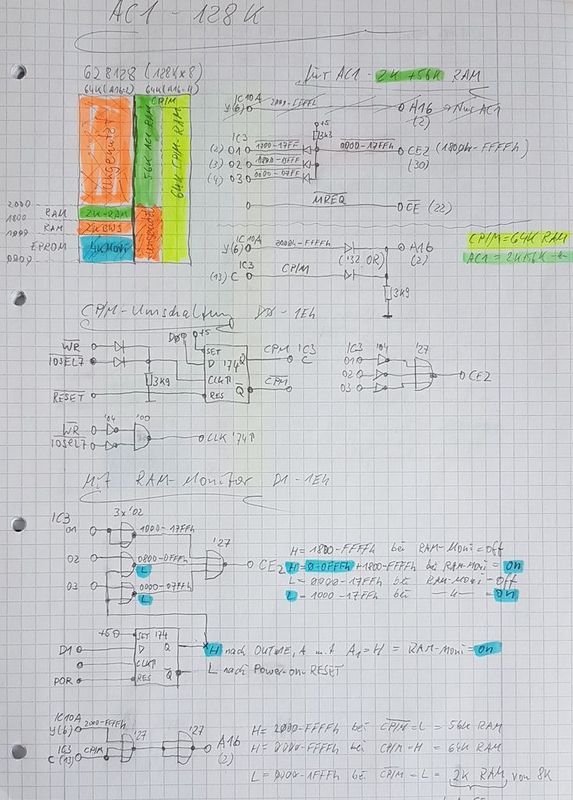 AC1 - 128K
628128 (128K×8)
64K(A16=L) 64K(A16=H)
CP/M
ungenutzt
56K AC1-RAM
64K CP/M-RAM
2000
RAM 2K-RAM
1800
RAM 2K BWS
1000
EPROM 4K Moni
0000
für AC1 - 2K + 56K RAM
IC10A
Y(6) 2000-FFFFh A16 → Nur AC1
(2)
+5
3k3
IC3
(2) 01 1000-17FF 0000-17FFh CE2 (1800h-FFFFh)
(3) 02 0800-0FFF (30)
(4) 03 0000-07FF
MREQ CE (22)
IC10A
Y(6) 2000h-FFFFh A16
('32 OR) (2)
IC3
(13) C CP/M
3K9
CP/M = 64K RAM
AC1 = 2K+56K
CP/M-Umschaltung D0 - 1Eh
WR
IOSEL7
RESET
3K9
D0 +5
SET
D '74 Q
CLK
RES Q
CPM IC3
C
CPM
IC3
01 '04 '27
02
03
CE2
WR '04 '00
IOSEL7
CLK '74
Mit RAM-Monitor D1 - 1Eh
3x'02
IC3
01 1000-17FFh
'27
02 0800-0FFFh CE2
L
03 0000-07FFh
L
H = 1800-FFFFh bei RAM-Moni = Off
H = 0-0FFFh + 1800-FFFFh bei RAM-Moni = On
L = 0000-17FFh bei RAM-Moni = Off
L = 1000-17FFh bei — " — = On
+5 SET '74
D1 D Q
CLK
POR RES Q
H nach OUT 1E, A mit A1=H = RAM-Moni = On
L nach Power-on-RESET
IC10A
Y(6) 2000-FFFFh
'27 '27
IC3
C (13) CP/M
A16
(2)
H = 2000-FFFFh bei CP/M = L = 56K RAM
H = 0000-FFFFh bei CP/M = H = 64K RAM
L = 0000-1FFFh bei CP/M = L = 2K RAM, von 8K